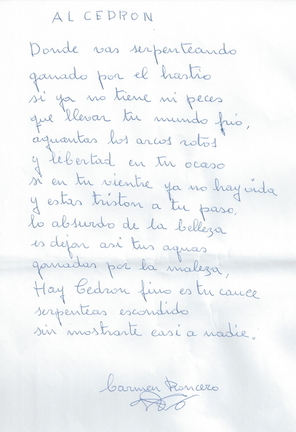 AL CEDRON
Donde vas serpenteando
ganado por el hastio
si ya no tiene ni peces
que llevar tu mundo frio,
aguantas los arcos rotos
y libertad en tu ocaso
si en tu vientre ya no hay vida
y estas triston a tu paso,
lo absurdo de la belleza
es dejar asi tus aguas
ganadas por la maleza,
Hay Cedron fino es tu cauce
serpenteas escondido
sin mostrarte casi a nadie.
Carmen Roncero